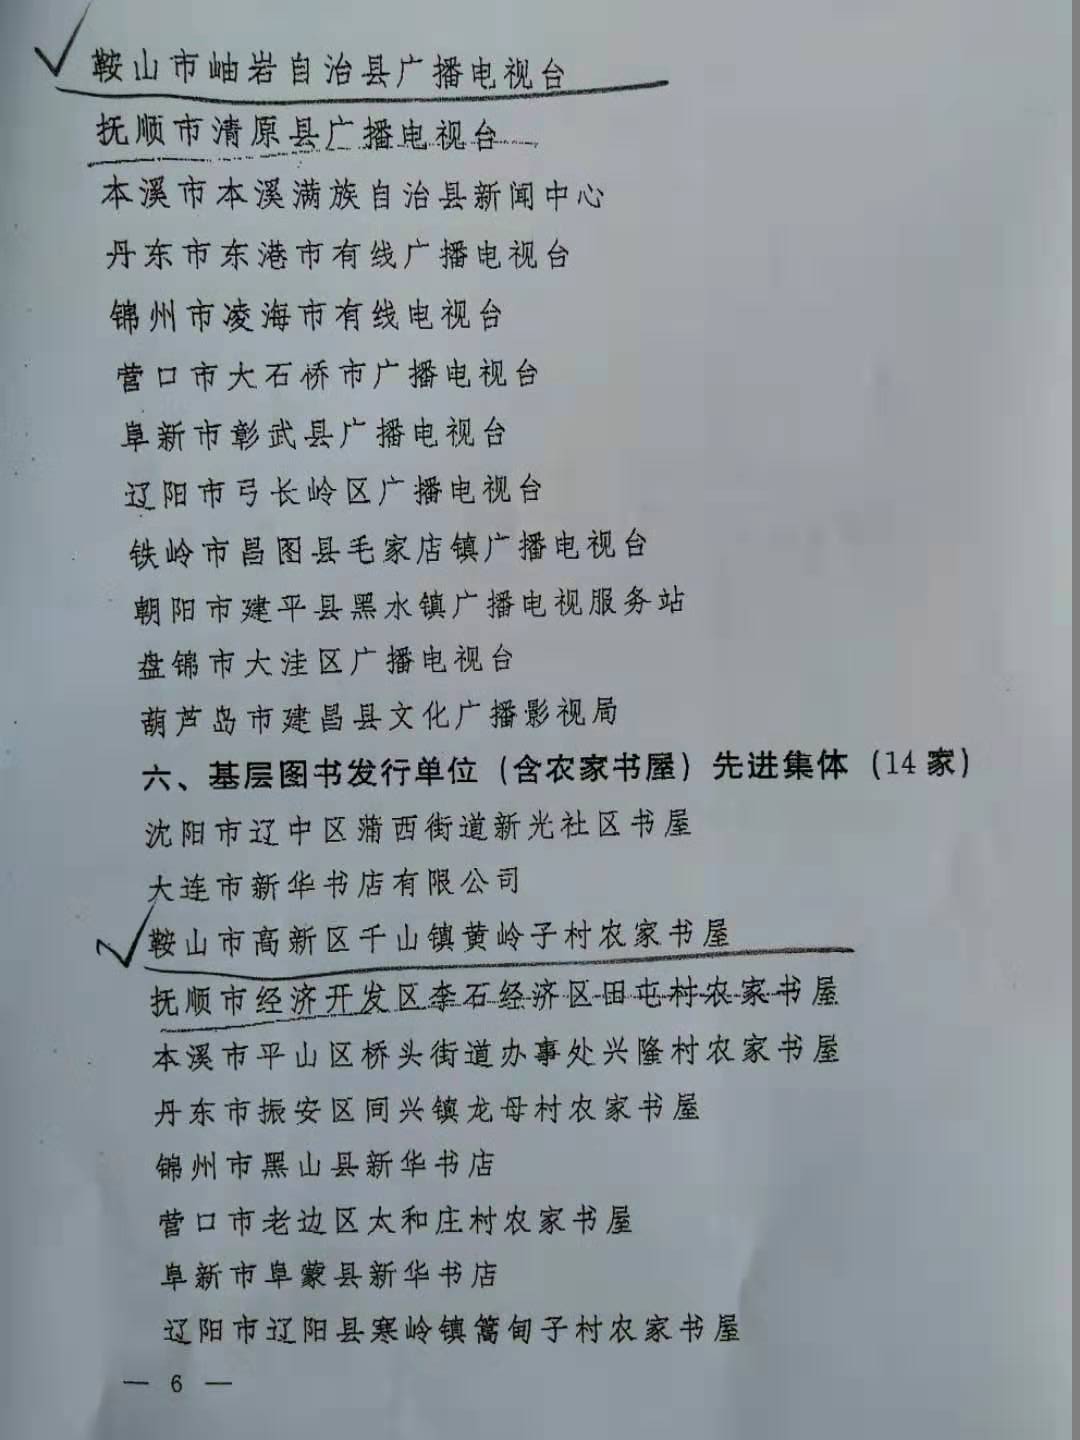 鞍山市岫岩自治县广播电视台
抚顺市清原县广播电视台
本溪市本溪满族自治县新闻中心
丹东市东港市有线广播电视台
锦州市凌海市有线电视台
营口市大石桥市广播电视台
阜新市彰武县广播电视台
辽阳市弓长岭区广播电视台
铁岭市昌图县毛家店镇广播电视台
朝阳市建平县黑水镇广播电视服务站
盘锦市大洼区广播电视台
葫芦岛市建昌县文化广播影视局
六、基层图书发行单位（含农家书屋）先进集体（14家）
沈阳市辽中区蒲西街道新光社区书屋
大连市新华书店有限公司
鞍山市高新区千山镇黄岭子村农家书屋
抚顺市经济开发区李石经济区田屯村农家书屋
本溪市平山区桥头街道办事处兴隆村农家书屋
丹东市振安区同兴镇龙母村农家书屋
锦州市黑山县新华书店
营口市老边区太和庄村农家书屋
阜新市阜蒙县新华书店
辽阳市辽阳县寒岭镇篙甸子村农家书屋
— 6 —